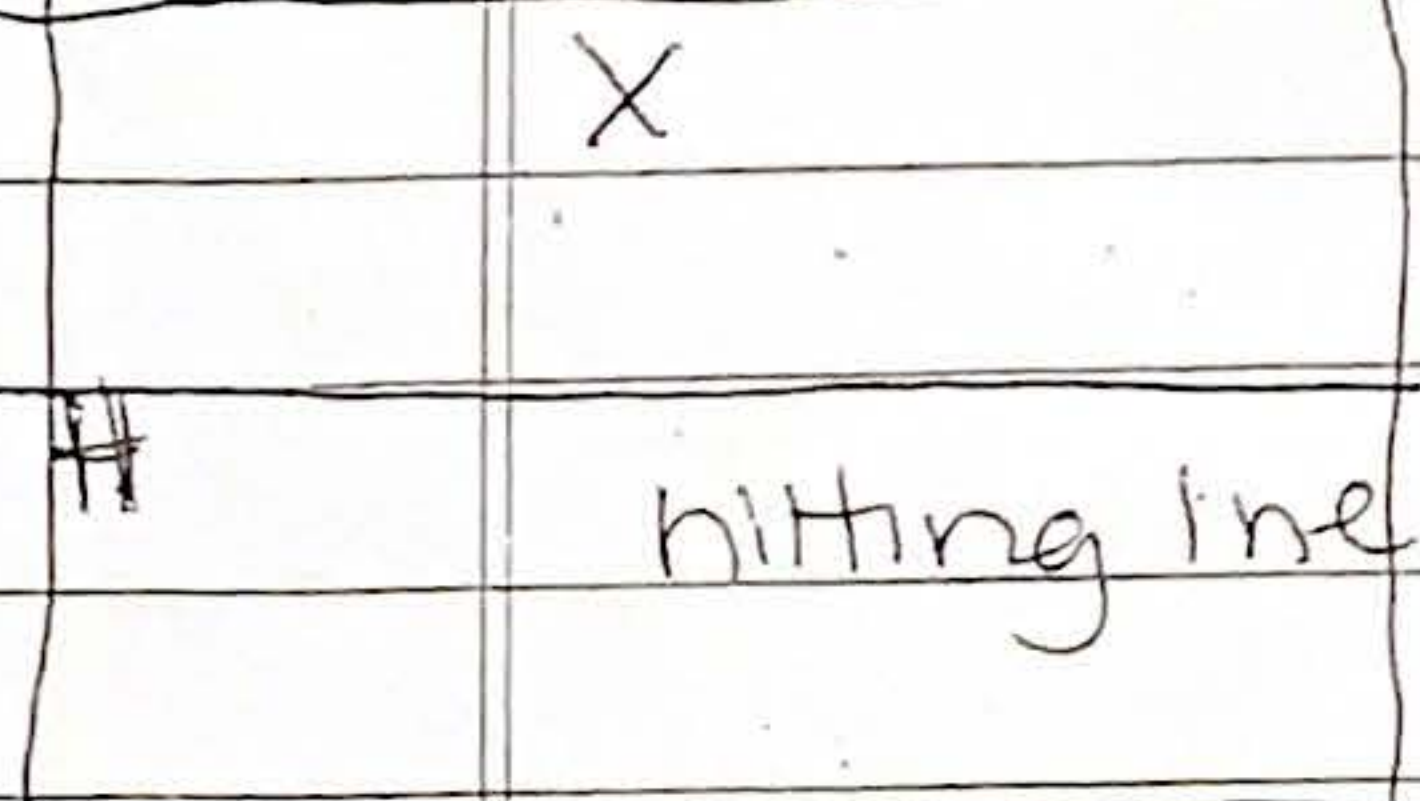 X
H hitting line